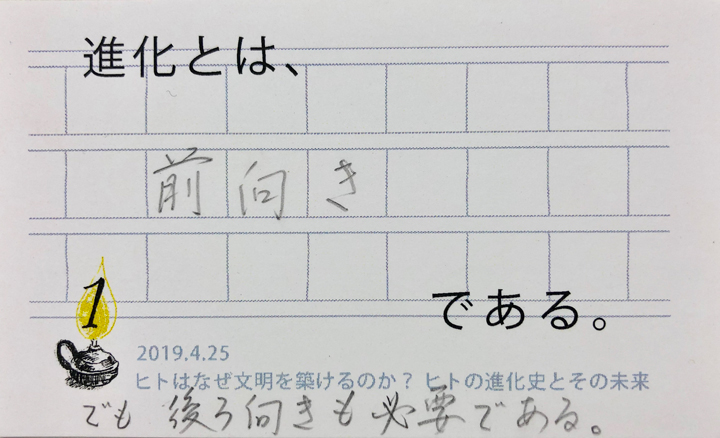 進化とは、
前向き
である。
1
2019.4.25
ヒトはなぜ文明を築けるのか？ ヒトの進化史とその未来
でも 後ろ向きも必要である。